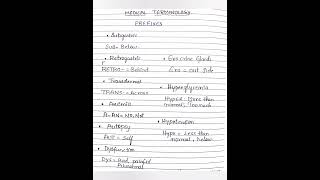 MEDICAL TERMINOLOGY
PREFIXES
• Subgastric
Sub = Below
• Retrogastric
RETRO- = Behind
• Transdermal
TRANS- = Across
• Anemia
A-AN = NO, Not
• Autopsy
Auto = Self
• Dysfunction
Dys = Bad, painful
Abnormal
• Exocrine Glands
Exo = out side
• Hyperglycemia
Hyper = More than
normal,
• Hypotension
Hypo = Less than
normal, below